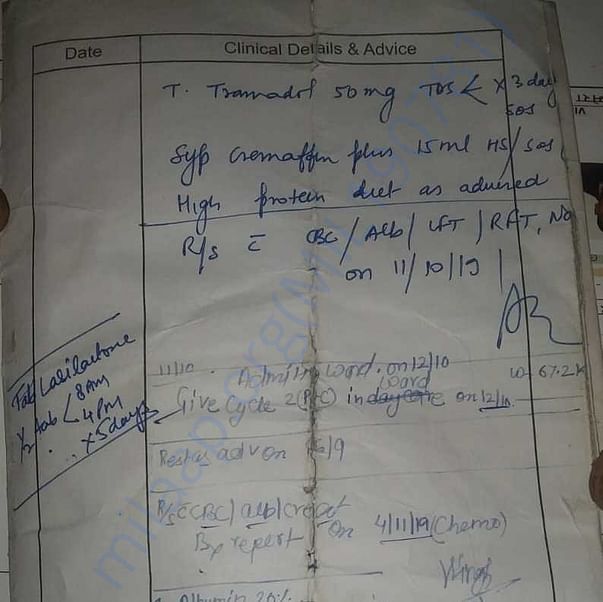 Date
Clinical Details & Advice
T. Tramadol 50 mg TDS < x 3 day
SOS
Syp Cremaffin plus 15 ml HS/SOS
High protein diet as advised
R/s c̄ CBC/Alb/LFT/RFT, Na
on 11/10/19
11/10 . Admit in ward . on 12/10
ward
67.2 K
Give Cycle 2 (P+C) in daycare on 12/10
Tab Lasilactone
½ tab < 8AM
4 PM
x 5 days
Rest as adv on /9
R/s c CBC/alb/creat
Bx report on 4/11/19 (Chemo)
Albumin 20%